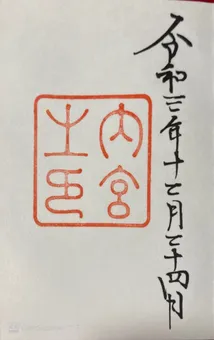 令和三年十二月二十四日
内宮
之印